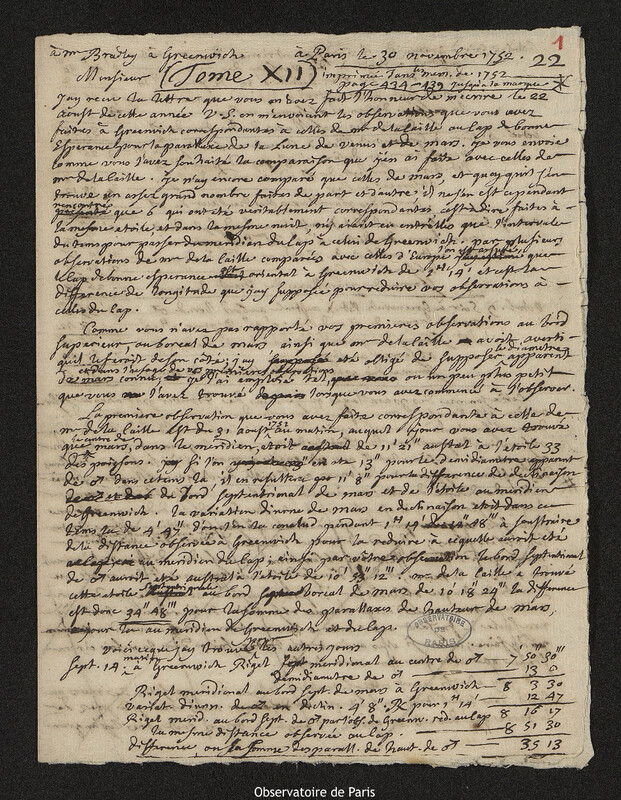 1
22
à mr Bradley à Greenwich à Paris le 30 novembre 1752.
Monsieur (Tome XII) imprimée dans mem. de 1752
page 434-439 jusqu'a la marque
J'ay recu la lettre que vous m'avez fait l'honneur de m'ecrire le 22
aoust de cette année V. S. en m'envoiant les observations que vous avez
faites à Greenwich correspondantes à celles de mr de la Caille au Cap de bonne
Esperance pour la parallaxe de la Lune de Venus et de mars. Je vous envoie
comme vous l'avez souhaité la comparaison que j'en ai faite avec celles de
mr de la Caille. Je n'ay encore comparé que celles de mars, et quoyqu'il s'en
trouve un assez grand nombre faites de part et d'autre, il ne s'en est cependant
rencontré que 6 qui ont été veritablement correspondantes, c'est à dire faites à
la mesme etoile et dans la mesme nuit, n'y aiant eu entr'elles que l'intervale
du tems pour passer du meridien du Cap à celui de Greenwich. par plusieurs
observations de mr de la Caille comparées avec celles d'Europe l'on est assuré que
le Cap de bonne esperance est oriental à Greenwich de 1H 14' et c'est la
difference de longitude que j'ay supposée pour reduire vos observations à
celles du Cap.
Comme vous n'avez pas rapporté vos premieres observations au bord
superieur, ou boreal de mars ainsi que mr de la Caille avoit averti
qu'il le feroit de son côté; j'ay été obligé de supposer le diametre apparent
de mars connu, que j'ai emploié tel, ou un peu plus petit
que vous l'avez trouvé lorsque vous avez commencé à l'observer.
La premiere observation que vous avez faite correspondante à celle de
mr de la Caille est du 31 aoust 1751 au matin, auquel jour vous avez trouvé
que le centre de mars, dans le meridien, étoit de 11' 21" austral à l'etoile 33
des poissons. Si l'on ote 13" pour le demidiametre apparent
de ♂ dans ce tems là, il en resultera 11' 8" pour la difference de declinaison
du bord septentrional de mars et de l'etoile au meridien
de Greenwich. la variation diurne de mars en declinaison etoit dans ce
tems là de 4' 47" d'où l'on la conclud pendant 1H 14' de 14" 48''' à soustraire
de la distance observée à Greenwich pour la reduire à ce qu'elle auroit eté
au meridien du Cap; ainsi par votre observation le bord septentrional
de ♂ auroit eté austral à l'etoile de 10' 53" 12'''. mr de la Caille a trouvé
cette etoile au bord boreal de mars de 10' 18" 24''' la difference
est donc 34" 48''' pour la somme des parallaxes de hauteur de mars,
au meridien de Greenwich et du Cap.
voici ce que j'ay trouvé les autres jours
Sept. 14, matin à Greenwich Rigel meridional au centre de ♂ — 7' 50" 30'''
demidiametre de ♂ — 13 0
Rigel meridional au bord sept. de mars à Greenwich — 8 3 30
variat. diurn. de ♂ en declin. 4' 8" et pour 1H 14' 12 47
Rigel merid. au bord sept. de ♂ par l'obs. de Greenw. red. au Cap 8 16 17
la mesme distance observée au Cap. — 8 51 30
difference, ou la somme des parall. de haut. de ♂ — 35 13
OBSERVATOIRE
DE
PARIS
Observatoire de Paris